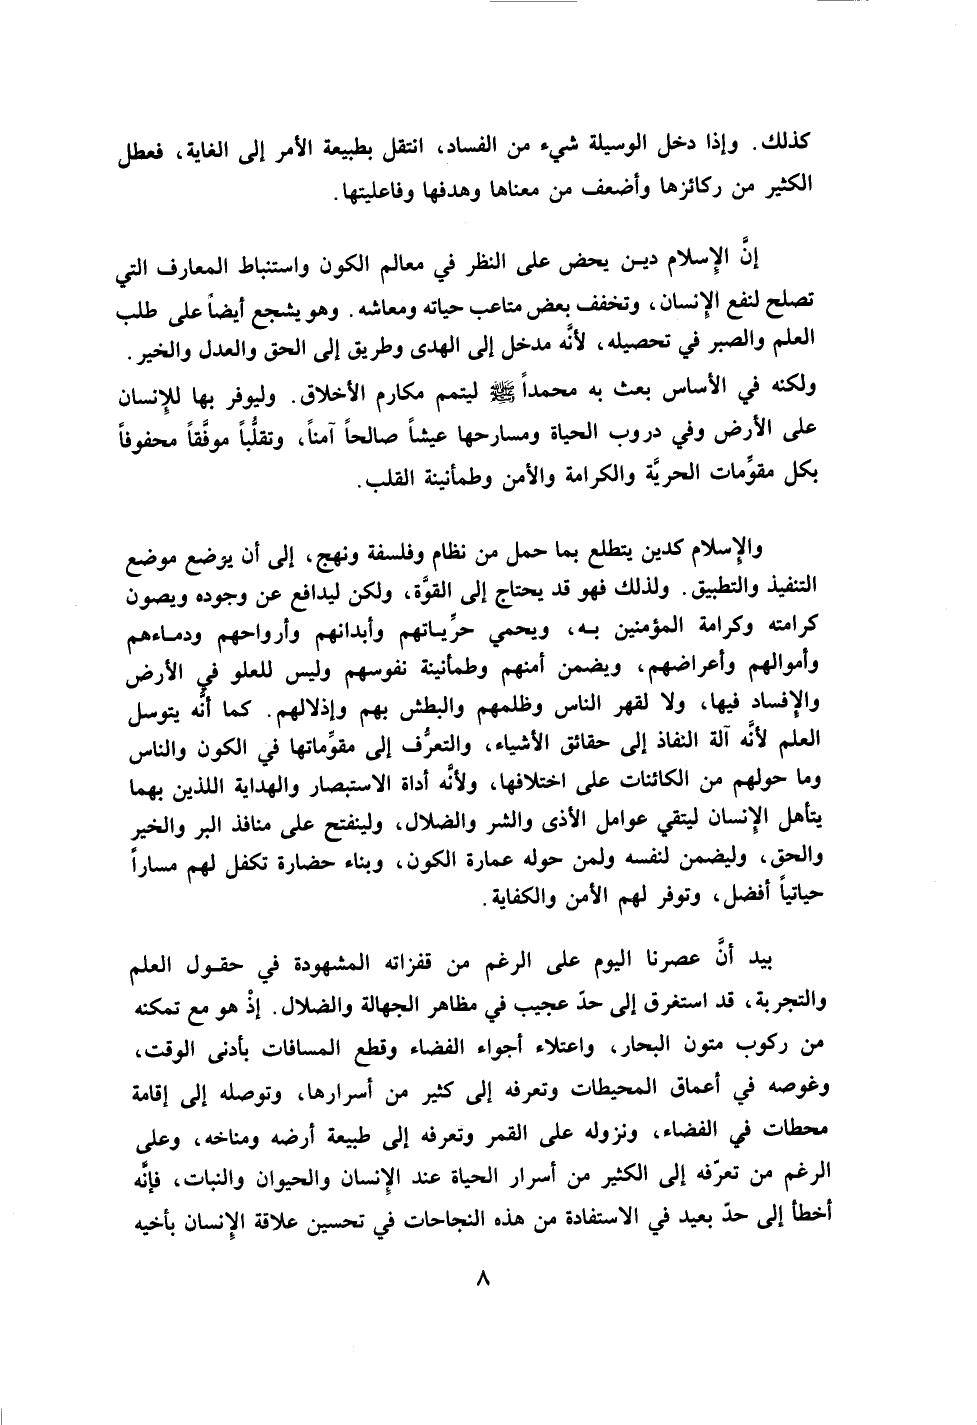 كذلك. وإذا دخل الوسيلة شيء من الفساد، انتقل بطبيعة الأمر إلى الغاية، فعطل
الكثير من ركائزها وأضعف من معناها وهدفها وفاعليتها.
إنَّ الإسلام دين يحض على النظر في معالم الكون واستنباط المعارف التي
تصلح لنفع الإنسان، وتخفف بعض متاعب حياته ومعاشه. وهو يشجع أيضاً على طلب
العلم والصبر في تحصيله، لأنَّه مدخل إلى الهدى وطريق إلى الحق والعدل والخير.
ولكنه في الأساس بعث به محمداً ﷺ ليتمم مكارم الأخلاق. وليوفر بها للإنسان
على الأرض وفي دروب الحياة ومسارحها عيشاً صالحاً آمناً، وتقلُّباً موفَّقاً محفوفاً
بكل مقوِّمات الحريَّة والكرامة والأمن وطمأنينة القلب.
والإسلام كدين يتطلع بما حمل من نظام وفلسفة ونهج، إلى أن يوضع موضع
التنفيذ والتطبيق. ولذلك فهو قد يحتاج إلى القوَّة، ولكن ليدافع عن وجوده ويصون
كرامته وكرامة المؤمنين به، ويحمي حرِّياتهم وأبدانهم وأرواحهم ودماءهم
وأموالهم وأعراضهم، ويضمن أمنهم وطمأنينة نفوسهم وليس للعلو في الأرض
والإفساد فيها، ولا لقهر الناس وظلمهم والبطش بهم وإذلالهم. كما أنَّه يتوسل
العلم لأنَّه آلة النفاذ إلى حقائق الأشياء، والتعرُّف إلى مقوِّماتها في الكون والناس
وما حولهم من الكائنات على اختلافها، ولأنَّه أداة الاستبصار والهداية اللذين بهما
يتأهل الإنسان ليتقي عوامل الأذى والشر والضلال، ولينفتح على منافذ البر والخير
والحق، وليضمن لنفسه ولمن حوله عمارة الكون، وبناء حضارة تكفل لهم مساراً
حياتياً أفضل، وتوفر لهم الأمن والكفاية.
بيد أنَّ عصرنا اليوم على الرغم من قفزاته المشهودة في حقول العلم
والتجربة، قد استغرق إلى حدّ عجيب في مظاهر الجهالة والضلال. إذْ هو مع تمكنه
من ركوب متون البحار، واعتلاء أجواء الفضاء وقطع المسافات بأدنى الوقت،
وغوصه في أعماق المحيطات وتعرفه إلى كثير من أسرارها، وتوصله إلى إقامة
محطات في الفضاء، ونزوله على القمر وتعرفه إلى طبيعة أرضه ومناخه، وعلى
الرغم من تعرّفه إلى الكثير من أسرار الحياة عند الإنسان والحيوان والنبات، فإنَّه
أخطأ إلى حدّ بعيد في الاستفادة من هذه النجاحات في تحسين علاقة الإنسان بأخيه
٨